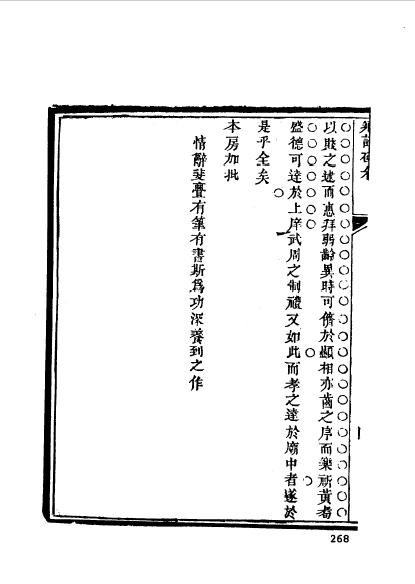 以賤之逮而惠拜弱齡異時可儕於顯相亦齒之序而樂祈黃耇
盛德可達於上庠武周之制禮又如此而孝之達於廟中者遂於
是乎全矣
本房加批
情辭斐亹有筆有書斯為功深養到之作
268